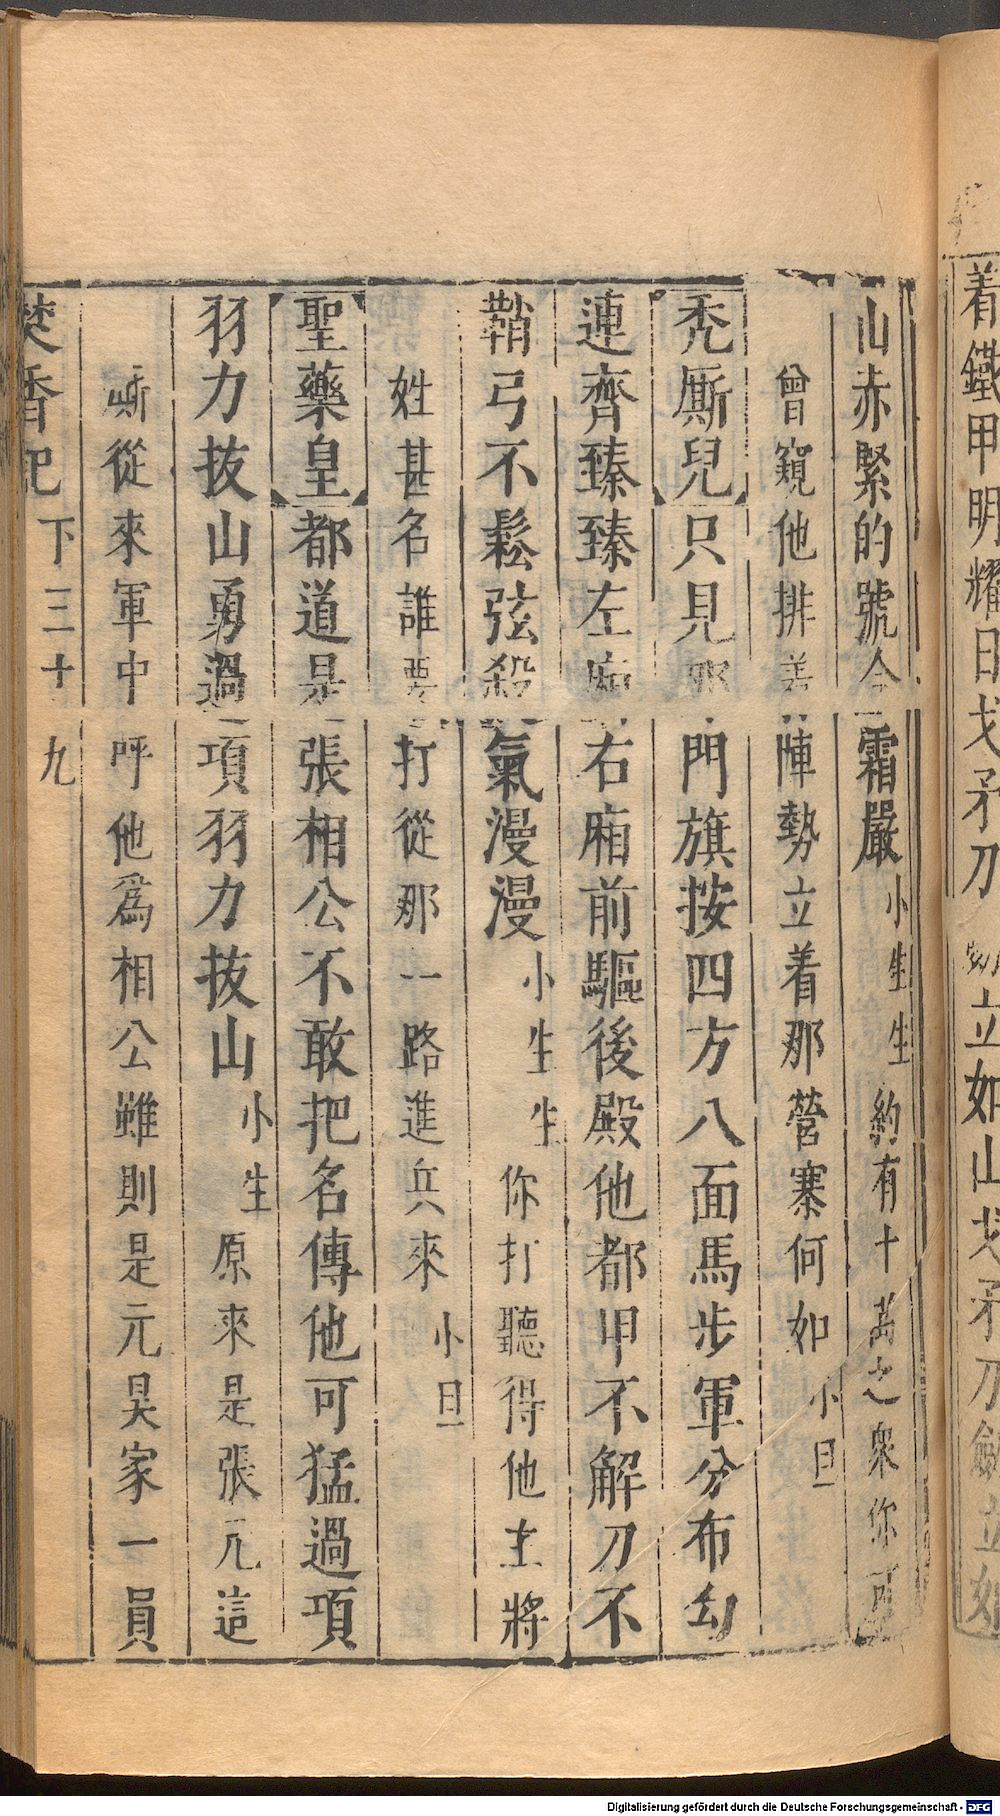 着鐵甲明耀日戈矛刀劍立如山戈矛刀劍立如
山赤緊的號令霜嚴小生生約有十萬之衆你可
曾窺他排着陣勢立着那營寨何如小旦
禿厮兒只見那門旗按四方八面馬步軍分布勾
連齊臻臻左廂右廂前驅後殿他都甲不解刀不
鞘弓不鬆弦殺氣漫漫小生生你打聽得他主將
姓甚名誰要打從那一路進兵來小旦
聖藥皇都道是張相公不敢把名傳他可猛過項
羽力拔山勇過項羽力拔山小生原來是張元這
厮從來軍中呼他爲相公雖則是元昊家一員
焚香記下三十九
Digitalisierung gefördert durch die Deutsche Forschungsgemeinschaft - DFG